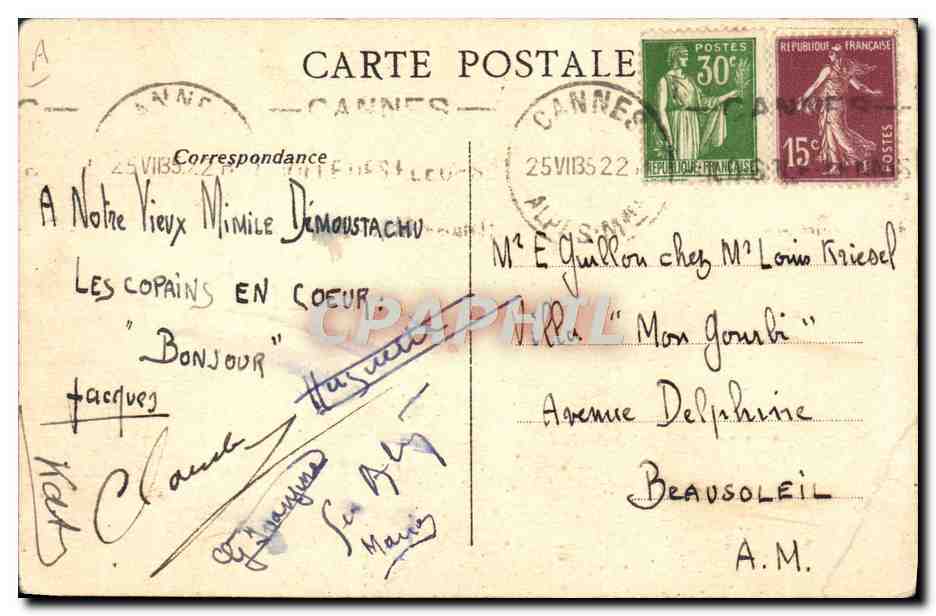 A
CARTE POSTALE
POSTES
30c
REPUBLIQUE FRANÇAISE
REPUBLIQUE FRANÇAISE
15c
POSTES
CANNES
CANNES
CANNES
25 VII 35 22
25 VII 35 22
ALPES-MMES
Correspondance
A Notre Vieux Mimile Démoustachu
LES COPAINS EN COEUR.
"BONJOUR"
Jacques
Huguette
Claude
Marie
Mr E Guillon chez Mr Louis Kriesel
Villa "Mon Gourbi"
Avenue Delphine
BEAUSOLEIL
A.M.
CPAPHIL